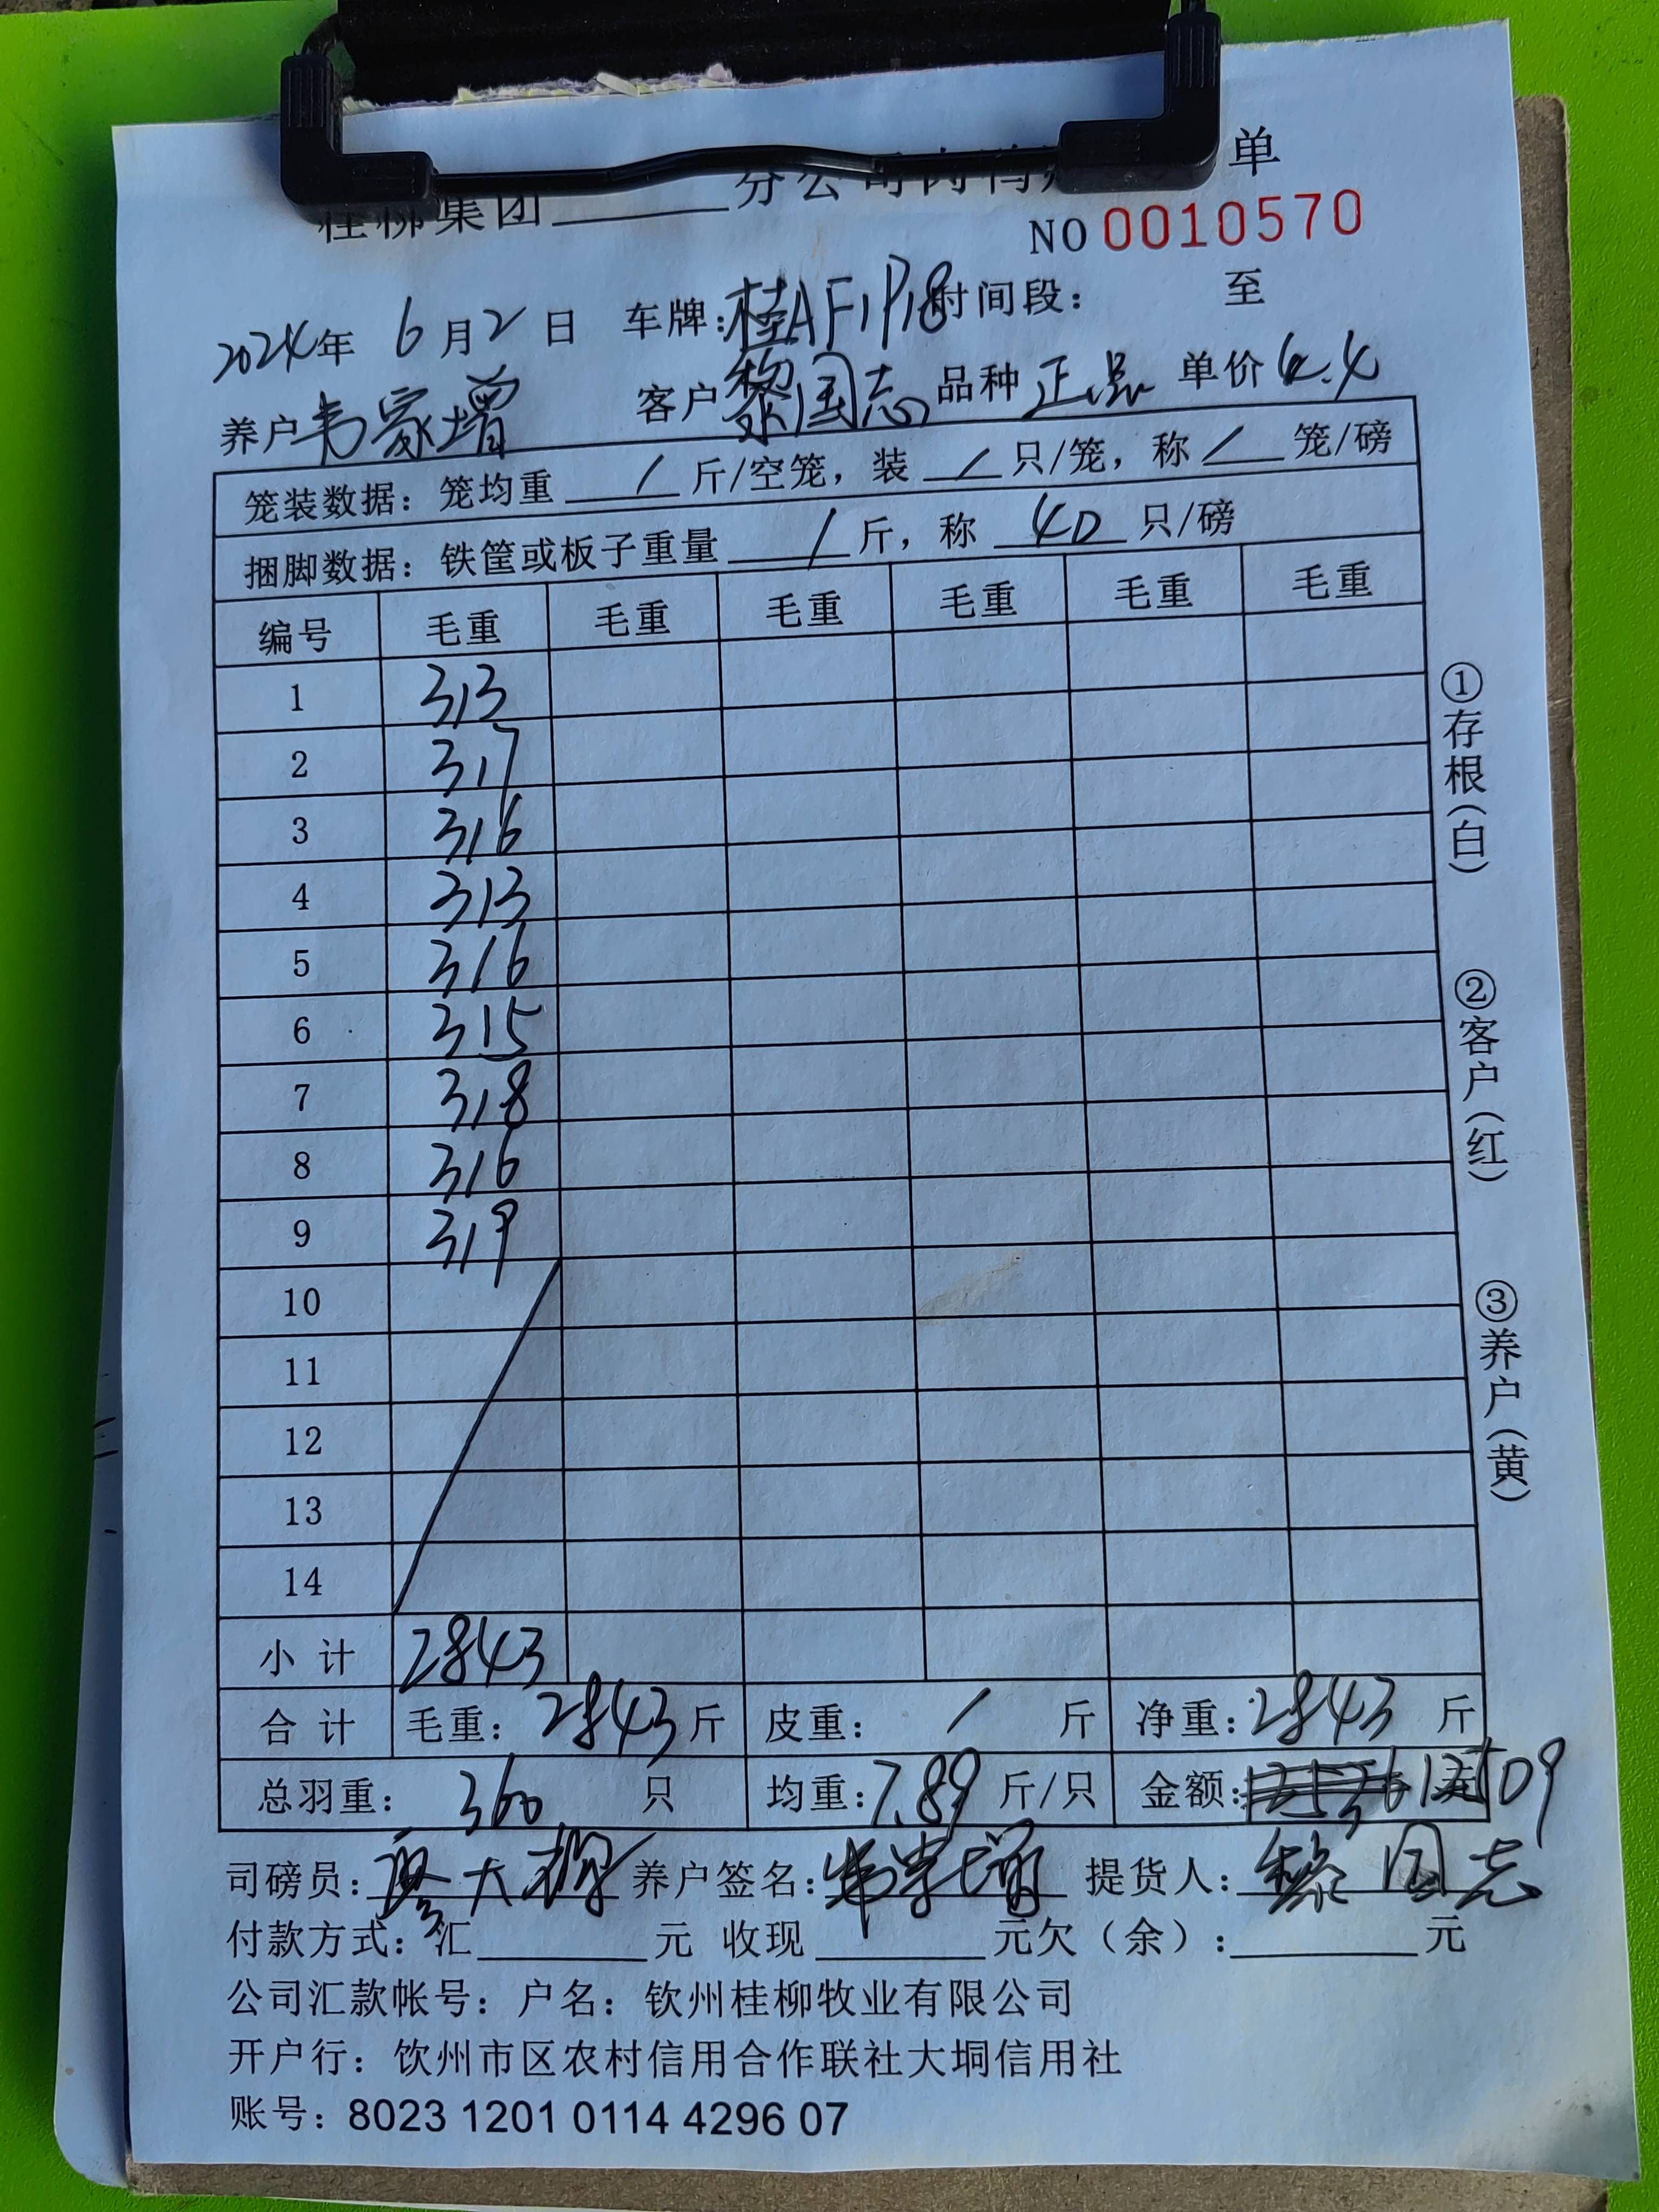 桂柳集团______分公司肉鸭 单
NO 0010570
2024年 6月2日 车牌:桂AF1P18 时间段: 至
养户 韦家增 客户 黎国志 品种 正品 单价 4.4
笼装数据: 笼均重 / 斤/空笼, 装 / 只/笼, 称 / 笼/磅
捆脚数据: 铁筐或板子重量 / 斤, 称 40 只/磅
编号 毛重 毛重 毛重 毛重 毛重 毛重
1 313
2 317
3 316
4 313
5 316
6 315
7 318
8 316
9 319
10
11
12
13
14
小计 2843
合计 毛重: 2843 斤 皮重: / 斤 净重: 2843 斤
总羽重: 360 只 均重: 7.89 斤/只 金额: 12509
司磅员: 廖大 养户签名: 韦家增 提货人: 黎国志
付款方式: 汇______元 收现______元欠(余):______元
公司汇款帐号: 户名: 钦州桂柳牧业有限公司
开户行: 钦州市区农村信用合作联社大垌信用社
账号: 8023 1201 0114 4296 07
①存根(白)
②客户(红)
③养户(黄)